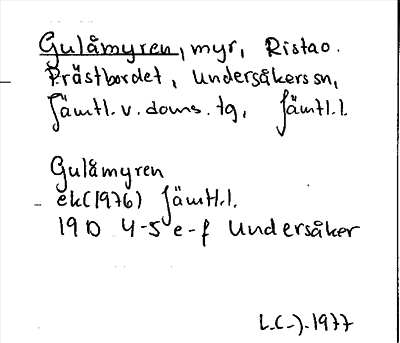 Gulåmyren, myr, Ristao.
Prästbordet, Undersåkers sn,
Jämtl. v. doms. tg, Jämtl. l.
Gulåmyren
ek (1976) Jämtl. l.
19 D 4-5 e-f Undersåker
L.C-). 1977